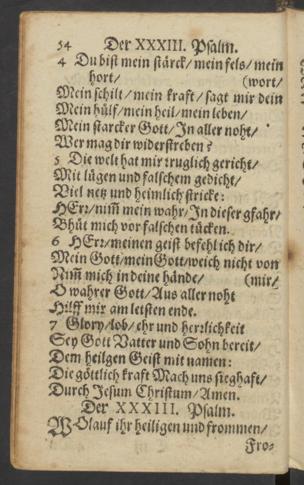 54 Der XXXIII. Psalm.
4 Du bist mein stärck/mein fels/mein
hort/ (wort/
Mein schilt/mein kraft/sagt mir dein
Mein hülf/mein heil/mein leben/
Mein starcker Gott/Jn aller noht/
Wer mag dir widerstreben?
5 Die welt hat mir truglich gericht/
Mit lügen und falschem gedicht/
Viel netz und heimlich stricke:
HErr/nim̄ mein wahr/Jn dieser gfahr/
Bhüt mich vor falschen tücken.
6 HErr/meinen geist befehl ich dir/
Mein Gott/mein Gott/weich nicht von
Nim̄ mich in deine hände/ (mir/
O wahrer Gott/Aus aller noht
Hilff mir am letsten ende.
7 Glory/lob/ehr und herrlichkeit
Sey Gott Vatter und Sohn bereit/
Dem heilgen Geist mit namen:
Die göttlich kraft Mach uns sieghaft/
Durch Jesum Christum/Amen.
Der XXXIII. Psalm.
WOlauf ihr heiligen und frommen/
Fro-